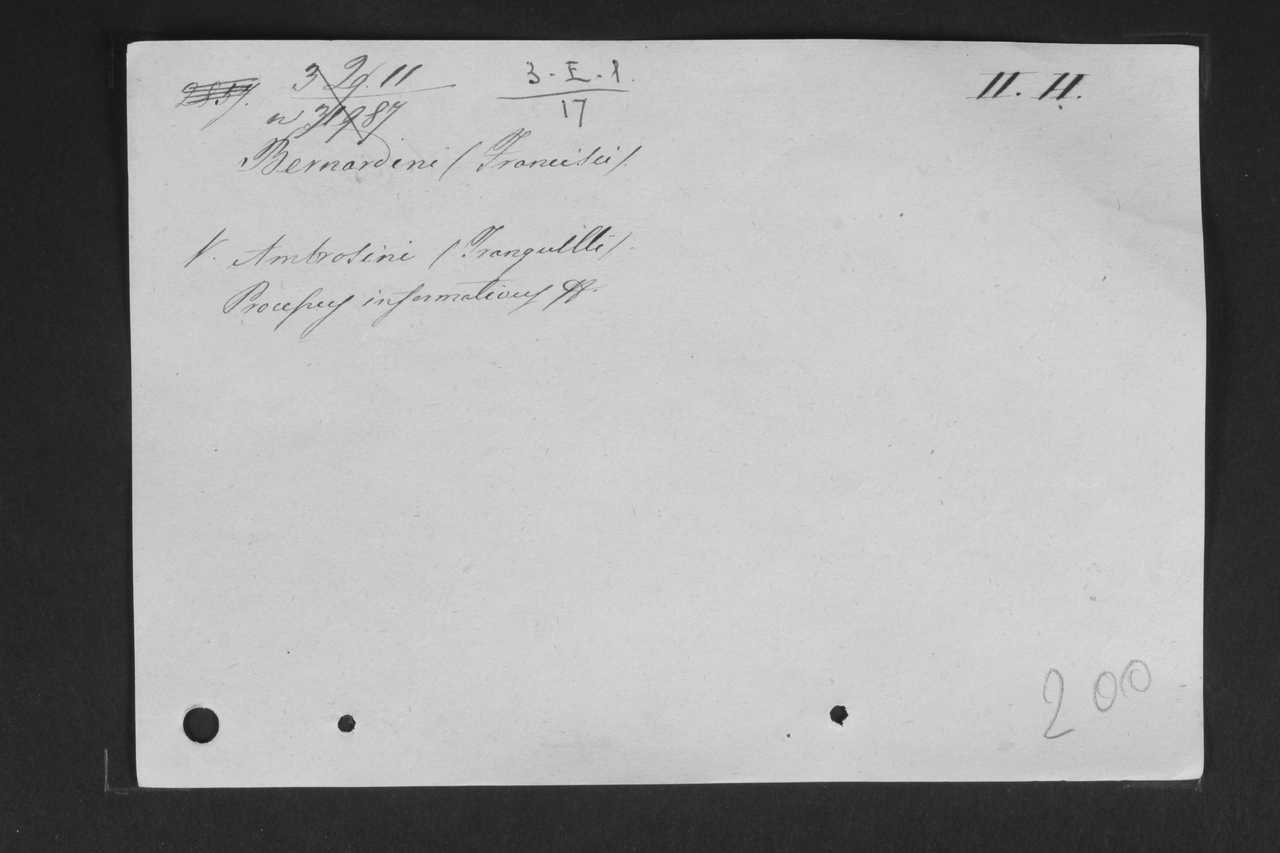 3 29. 11
n 31987
3. E. 1.
17
II. H.
Bernardini (Francisci).
V. Ambrosini (Tranquilli).
Processus informativus
200